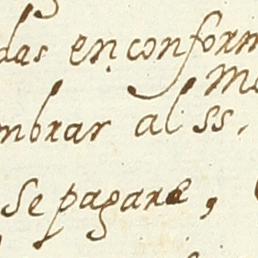 das en conform
Mo
mbrar al ss.
se pagare,